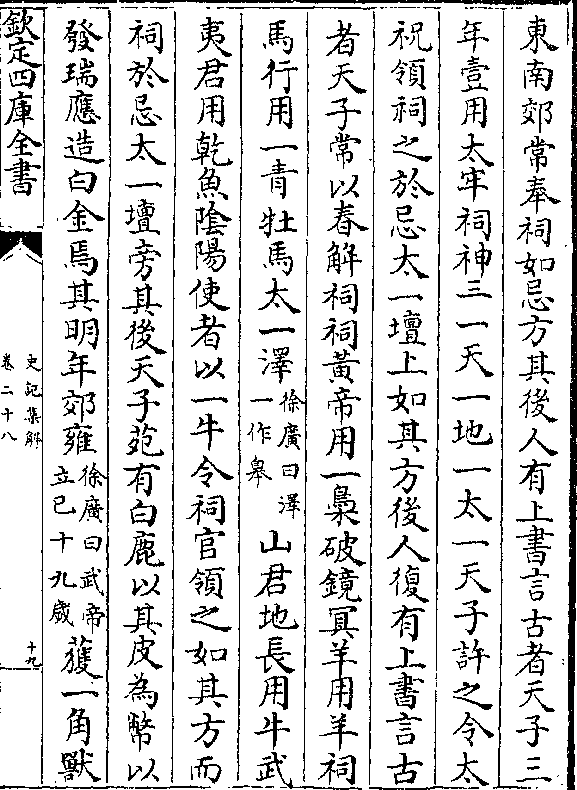 東南郊常奉祠如忌方其後人有上書言古者天子三
年壹用太牢祠神三一天一地一太一天子許之令太
祝領祠之於忌太一壇上如其方後人復有上書言古
者天子常以春解祠祠黃帝用一梟破鏡冥羊用羊祠
馬行用一青牡馬太一澤徐廣曰澤一作皋山君地長用牛武
夷君用乾魚陰陽使者以一牛令祠官領之如其方而
祠於忌太一壇旁其後天子苑有白鹿以其皮為幣以
發瑞應造白金焉其明年郊雍徐廣曰武帝立已十九歲獲一角獸
欽定四庫全書
史記集解
卷二十八
十九